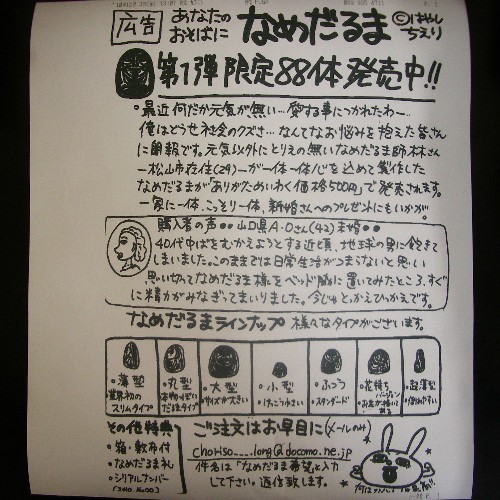 広告
あなたの
おそばに
なめだるま
©はやし
ちえり
第1弾 限定88体発売中!!
・最近何だか元気が無い…愛する事につかれたわー
俺はどうせ社会のクズさ…なんてなお悩みを抱えた皆さん
に朗報です。元気以外にとりえの無いなめだるま師林さん
ー松山市在住(29)ーが一体一体心を込めて製作した
なめだるまが「ありがためいわく価格500円」で発売されます。
一家に一体、こっそり一体、新婚さんへのプレゼントにもいかが。
購入者の声●●山口県A・Oさん(42)未婚●●
40代中ばをむかえようとする近頃、地球の男に飽きて
しまいました。このままでは日常生活がつまらないと思い
思い切ってなめだるま様をベッド脇に置いてみたところ、すぐ
に精力がみなぎってまいりました。今じゃとっかえひっかえです。
なめだるまラインナップ 様々なタイプがございます。
・薄型
世界初の
スリムタイプ
・丸型
だるまタイプ
・大型
サイズが大きい
・小型
けっこう小さい
・ふつう
スタンダード
・花持ち
バージョン
・超薄型
その他特典
・箱・敷布付
・なめだるま札
・シリアルナンバー
ご注文はお早目に(メールのみ)
choriso___long@docomo.ne.jp
件名は「なめだるま希望」と入力
して下さい。返信致します。